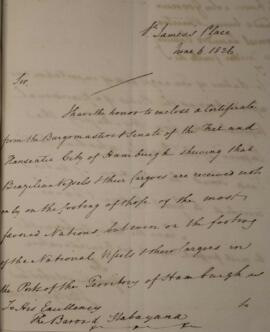 St. James's Place
June 6. 1826
Sir,
I have the honor to enclose a Certificate
from the Burgomasters & Senate of the Free and
Hanseatic City of Hamburgh shewing that
Brazilian Vessels & their Cargoes are received not
only on the footing of those of the most
favored Nations but even on the footing
of the National Vessels & their Cargoes in
the Ports of the Territory of Hamburgh as
To His Excellency
The Baron d'Itabayana
to